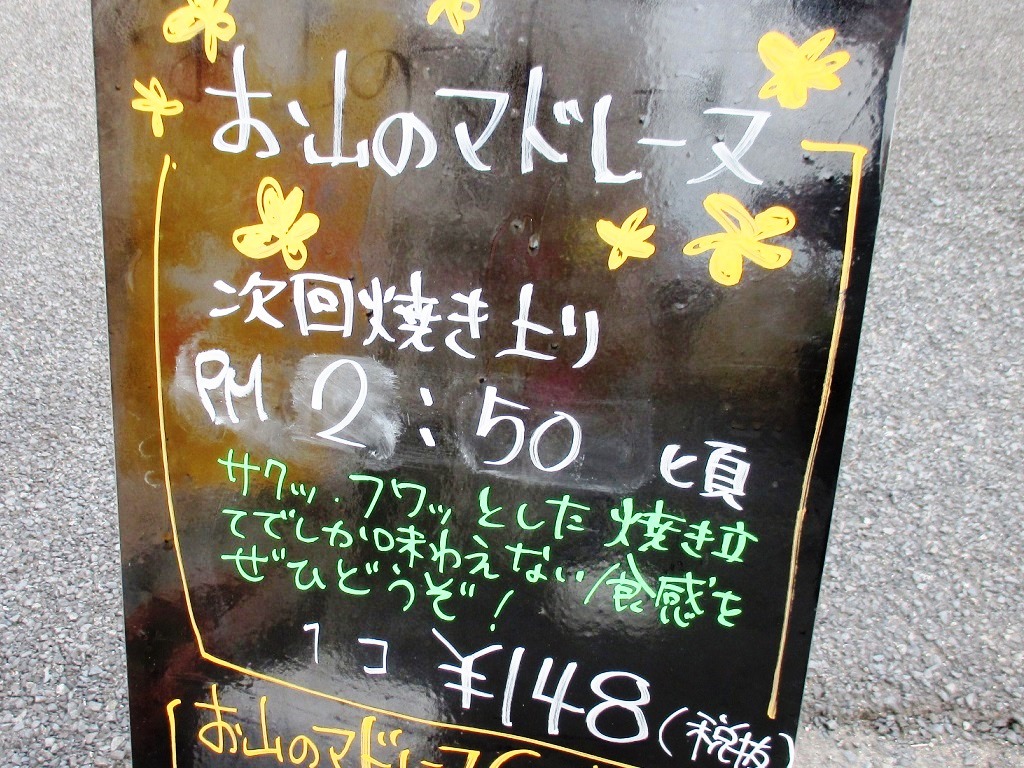 お山のマドレーヌ
次回焼き上り
PM 2:50 頃
サクッ・フワッとした焼き立
てでしか味わえない食感を
ぜひどうぞ!
1コ ¥148(税抜)
お山のマドレーヌ